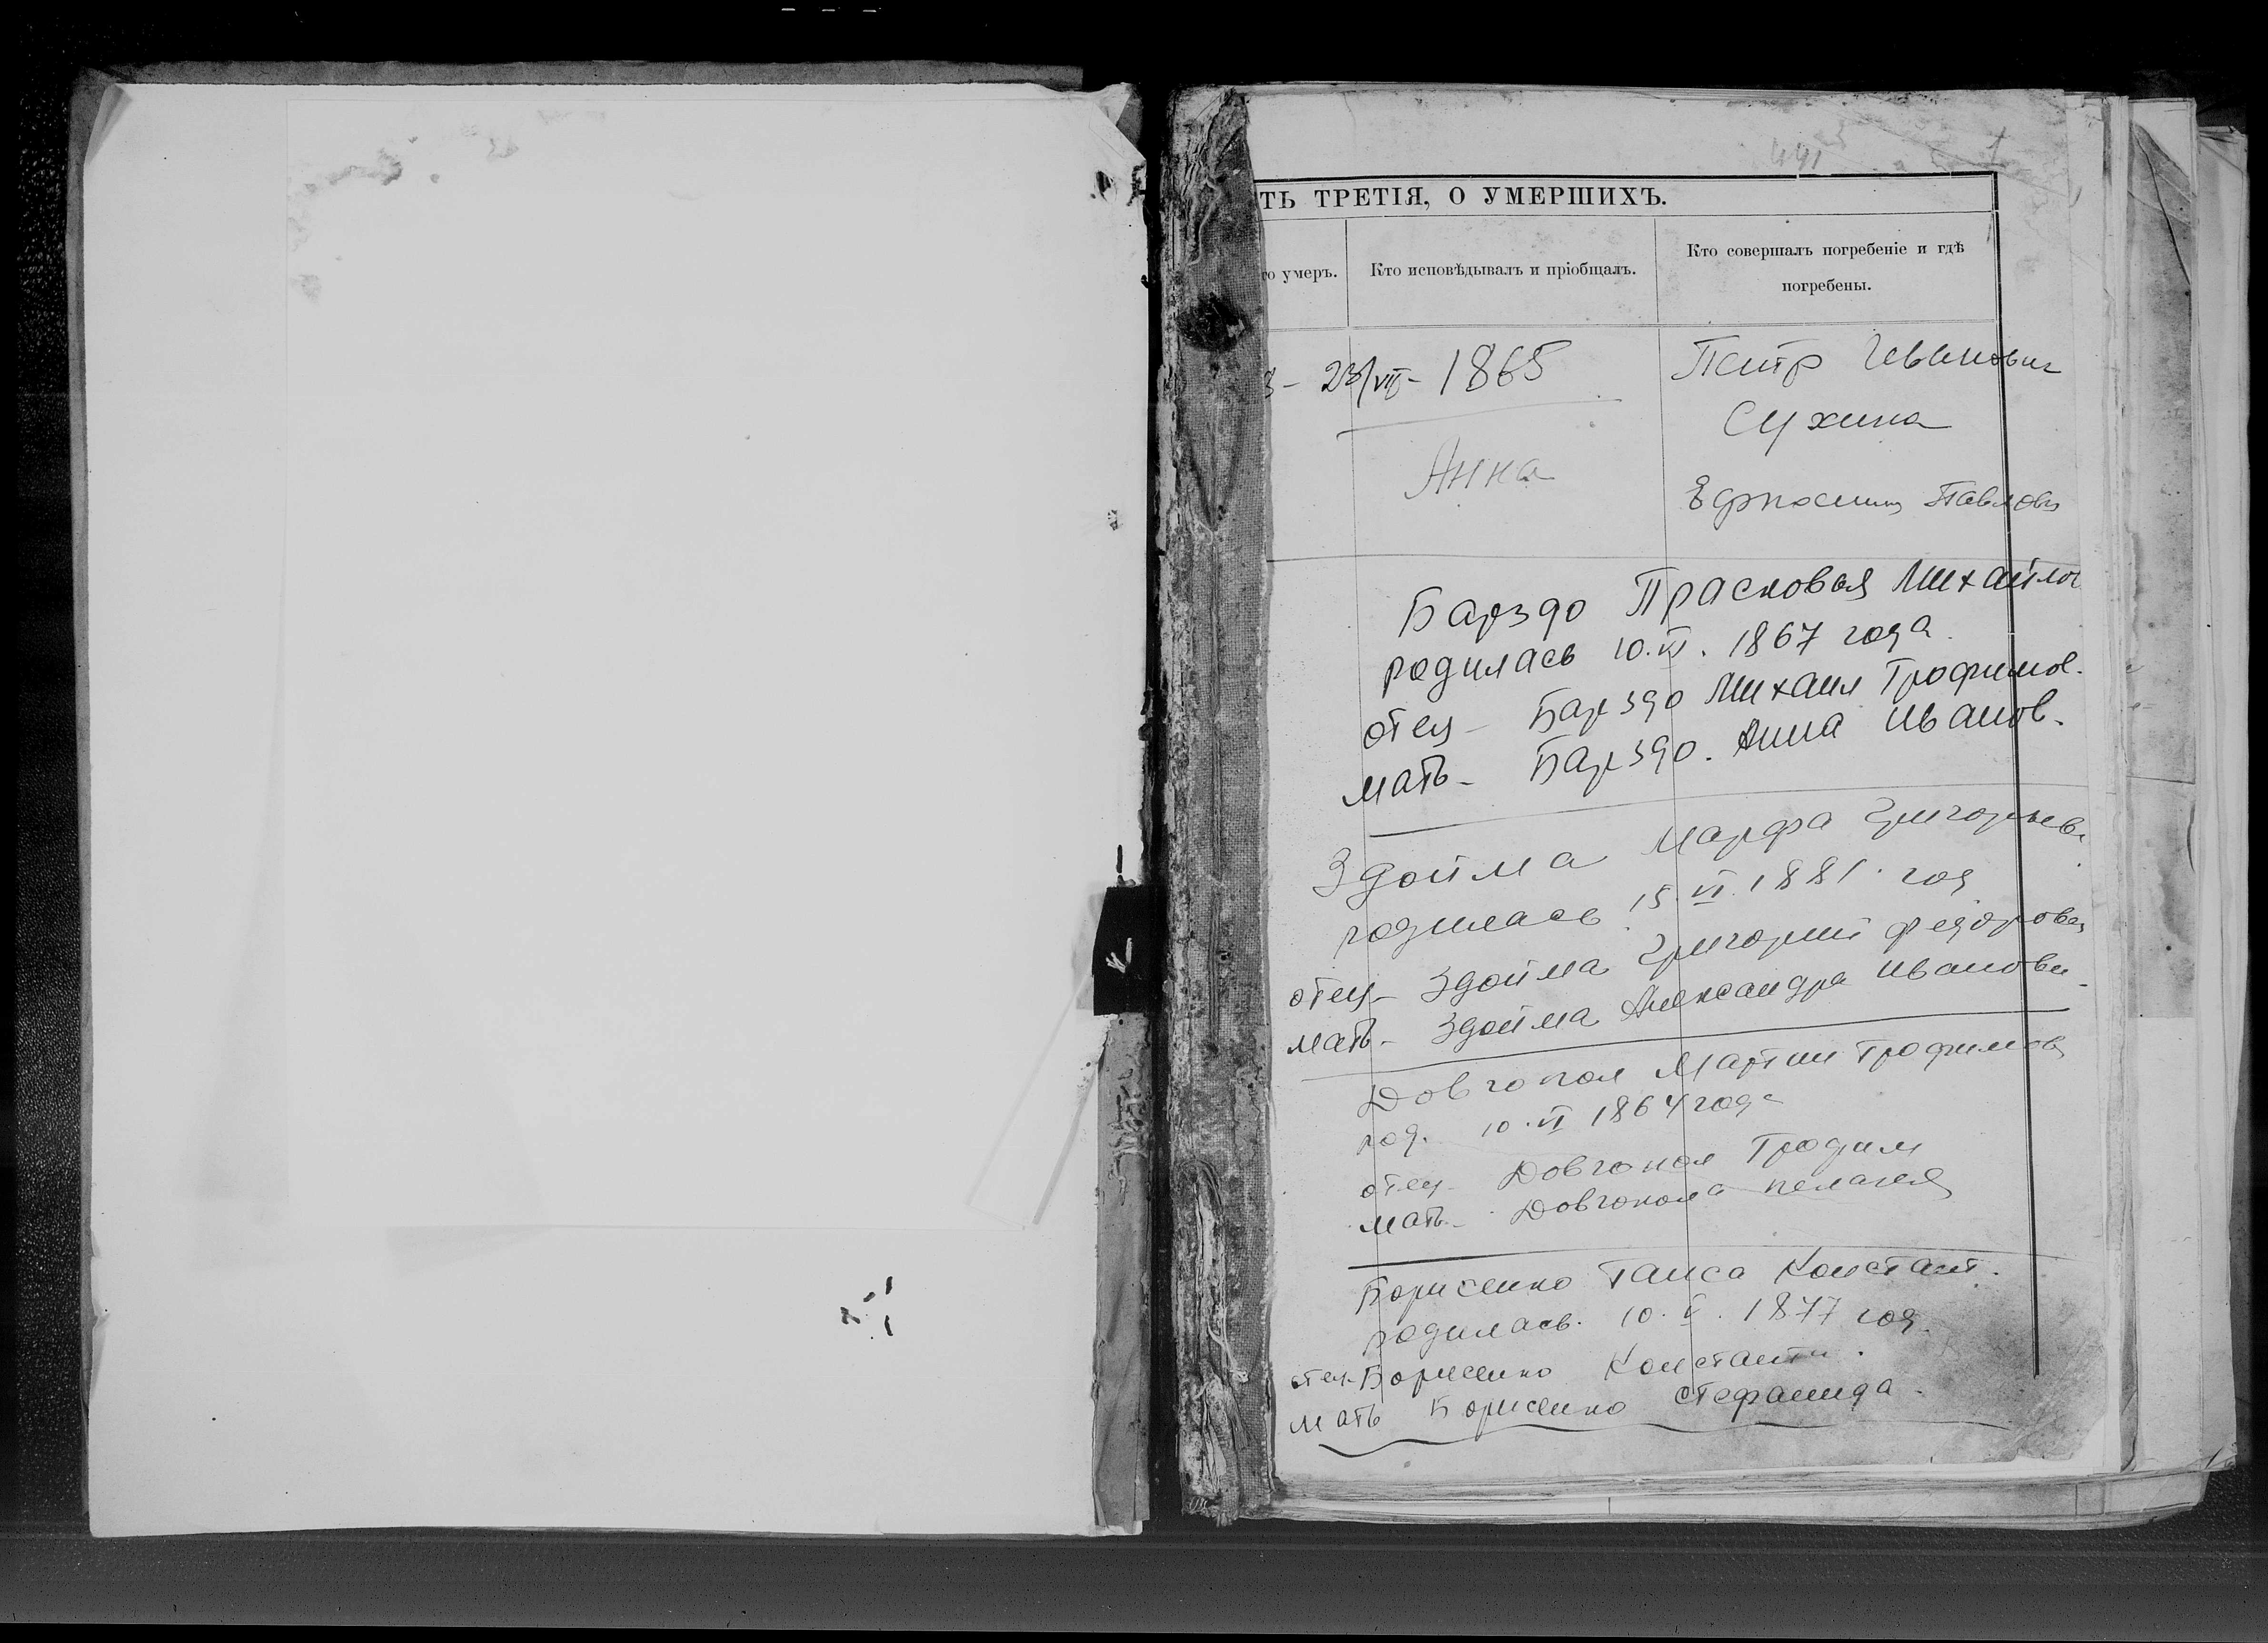 441
1
ТЬ ТРЕТІЯ, О УМЕРШИХЪ.
го умеръ.
Кто исповѣдывалъ и пріобщалъ.
Кто совершалъ погребеніе и гдѣ
погребены.
3 - 23/VII - 1865
Петр Иванович
Сухина
Анна
Ефросинии Павловы
Барздо Прасковья Михайлов
родилась 10.VI. 1867 года.
отец - Барздо Михаил Трофимов.
мать - Барздо. Анна Иванов.
Здойма Марфа Григорьев
родилась 15.VI.1881. год
отец - Здойма Григорий Федорович
мать - Здойма Александра Ивановн
Довгопол Мартин Трофимов
род. 10.VI 1864 года
отец - Довгопол Трофим
мать - Довгопола Пелагея
Борисенко Таиса Констант.
родилась. 10.V. 1877 год.
отец - Борисенко Константин.
мать Борисенко Стефанида.